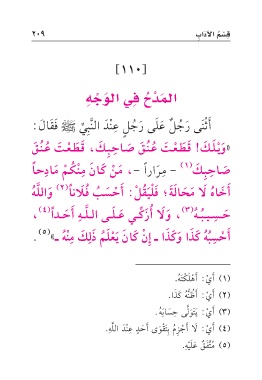 قِسْمُ الآدَابِ ٢٠٩
[١١٠]
المَدْحُ فِي الوَجْهِ
أَثْنَى رَجُلٌ عَلَى رَجُلٍ عِنْدَ النَّبِيِّ ﷺ فَقَالَ:
«وَيْلَكَ! قَطَعْتَ عُنُقَ صَاحِبِكَ، قَطَعْتَ عُنُقَ
صَاحِبِكَ(١) - مِرَاراً -، مَنْ كَانَ مِنْكُمْ مَادِحاً
أَخَاهُ لَا مَحَالَةَ؛ فَلْيَقُلْ: أَحْسَبُ فُلَاناً(٢) وَاللَّهُ
حَسِيبُهُ(٣)، وَلَا أُزَكِّي عَلَى اللَّهِ أَحَداً(٤)،
أَحْسِبُهُ كَذَا وَكَذَا ـ إِنْ كَانَ يَعْلَمُ ذَلِكَ مِنْهُ ـ»(٥).
(١) أَيْ: أَهْلَكْتَهُ.
(٢) أَيْ: أَظُنُّهُ كَذَا.
(٣) أَيْ: يَتَوَلَّى حِسَابَهُ.
(٤) أَيْ: لَا أَجْزِمُ بِتَقْوَى أَحَدٍ عِنْدَ اللَّهِ.
(٥) مُتَّفَقٌ عَلَيْهِ.